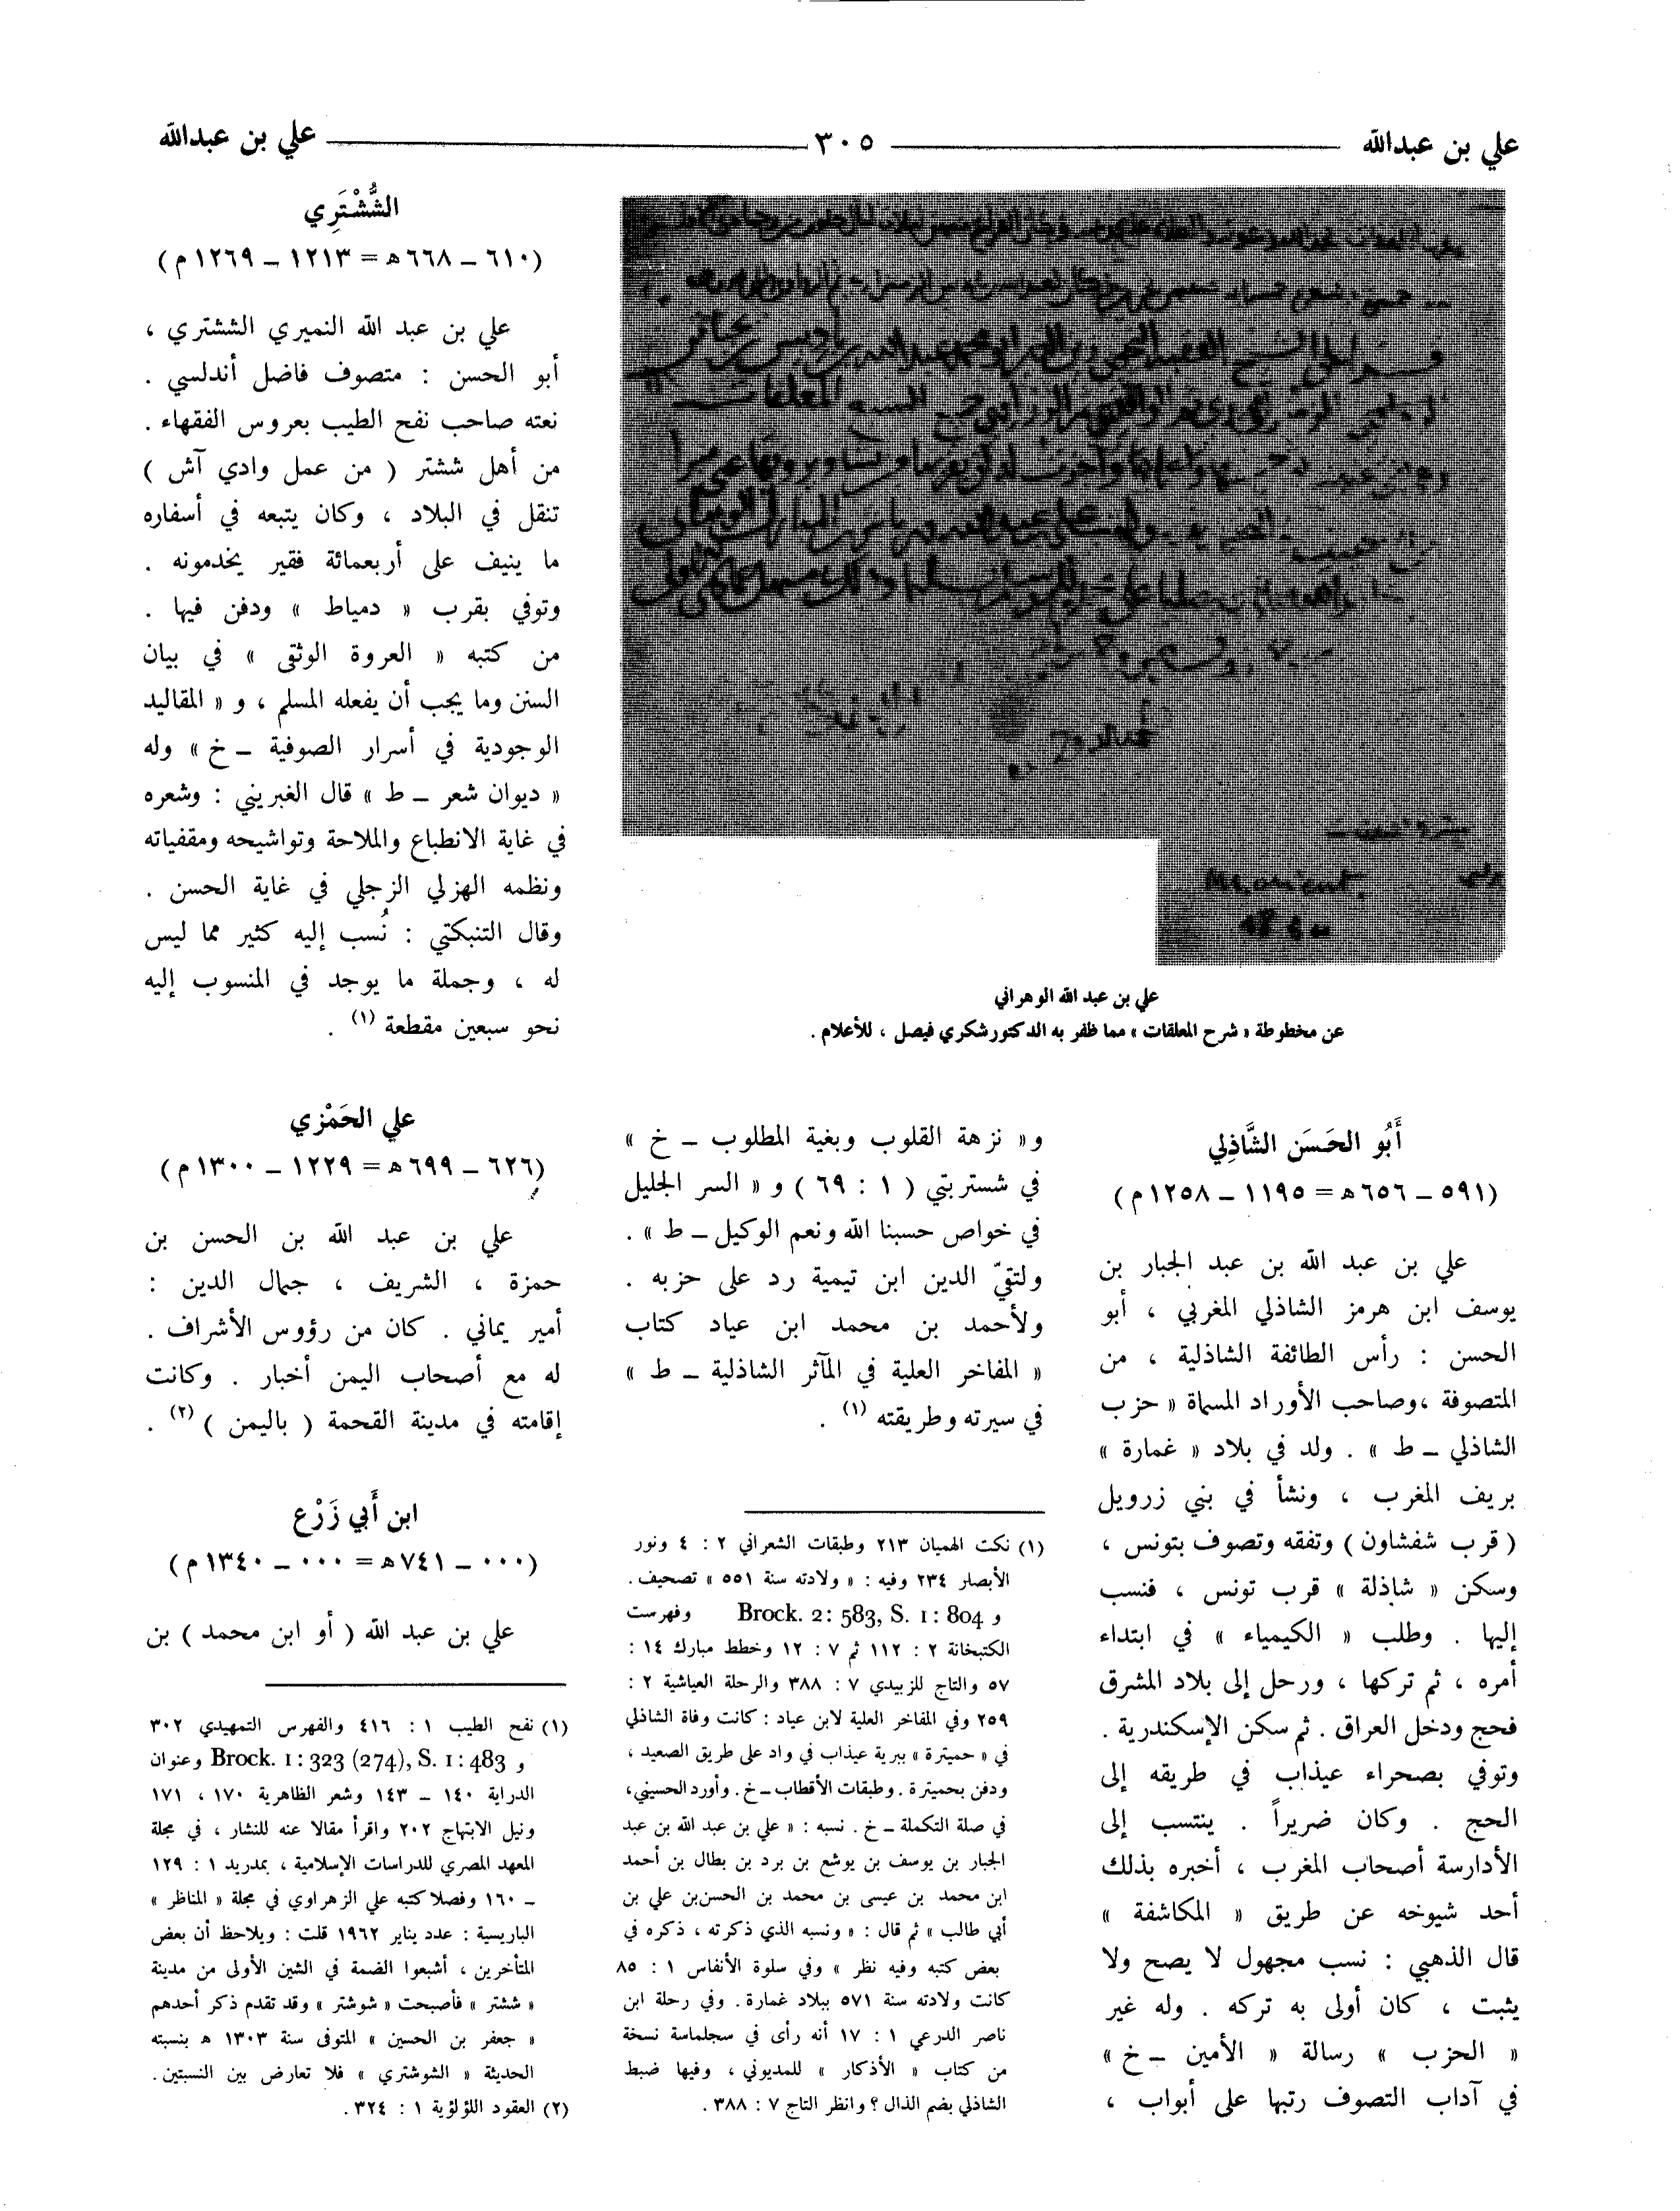 علي بن عبدالله ٣٠٥ علي بن عبدالله
علي بن عبد الله الوهراني
عن مخطوطة « شرح المعلقات » مما ظفر به الدكتور شكري فيصل ، للأعلام .
أَبُو الحَسَن الشَّاذِلي
(٥٩١ – ٦٥٦ ه = ١١٩٥ – ١٢٥٨ م)
علي بن عبد الله بن عبد الجبار بن
يوسف ابن هرمز الشاذلي المغربي ، أبو
الحسن : رأس الطائفة الشاذلية ، من
المتصوفة ،وصاحب الأوراد المسماة « حزب
الشاذلي – ط » . ولد في بلاد « غمارة »
بريف المغرب ، ونشأ في بني زرويل
( قرب شفشاون ) وتفقه وتصوف بتونس ،
وسكن « شاذلة » قرب تونس ، فنسب
إليها . وطلب « الكيمياء » في ابتداء
أمره ، ثم تركها ، ورحل إلى بلاد المشرق
فحج ودخل العراق . ثم سكن الإسكندرية .
وتوفي بصحراء عيذاب في طريقه إلى
الحج . وكان ضريراً . ينتسب إلى
الأدارسة أصحاب المغرب ، أخبره بذلك
أحد شيوخه عن طريق « المكاشفة »
قال الذهبي : نسب مجهول لا يصح ولا
يثبت ، كان أولى به تركه . وله غير
« الحزب » رسالة « الأمين – خ »
في آداب التصوف رتبها على أبواب ،
و« نزهة القلوب وبغية المطلوب – خ »
في شستربتي ( ١ : ٦٩ ) و « السر الجليل
في خواص حسبنا الله ونعم الوكيل – ط » .
ولتقيّ الدين ابن تيمية رد على حزبه .
ولأحمد بن محمد ابن عياد كتاب
« المفاخر العلية في المآثر الشاذلية – ط »
في سيرته وطريقته (١) .
(١) نكت الهميان ٢١٣ وطبقات الشعراني ٢ : ٤ ونور
الأبصار ٢٣٤ وفيه : « ولادته سنة ٥٥١ » تصحيف .
و Brock. 2: 583, S. 1: 804 وفهرست
الكتبخانة ٢ : ١١٢ ثم ٧ : ١٢ وخطط مبارك ١٤ :
٥٧ والتاج للزبيدي ٧ : ٣٨٨ والرحلة العياشية ٢ :
٢٥٩ وفي المفاخر العلية لابن عياد : كانت وفاة الشاذلي
في « حميثرة » ببرية عيذاب في واد على طريق الصعيد ،
ودفن بحميثرة . وطبقات الأقطاب – خ . وأورد الحسيني ،
في صلة التكملة – خ . نسبه : « علي بن عبد الله بن عبد
الجبار بن يوسف بن يوشع بن برد بن بطال بن أحمد
ابن محمد بن عيسى بن محمد بن الحسن بن علي بن
أبي طالب » ثم قال : « ونسبه الذي ذكرته ، ذكره في
بعض كتبه وفيه نظر » وفي سلوة الأنفاس ١ : ٨٥
كانت ولادته سنة ٥٧١ ببلاد غمارة . وفي رحلة ابن
ناصر الدرعي ١ : ١٧ أنه رأى في سجلماسة نسخة
من كتاب « الأذكار » للمديوني ، وفيها ضبط
الشاذلي بضم الذال ؟ وانظر التاج ٧ : ٣٨٨ .
الشُّشْتَرِي
(٦١٠ – ٦٦٨ ه = ١٢١٣ – ١٢٦٩ م)
علي بن عبد الله النميري الششتري ،
أبو الحسن : متصوف فاضل أندلسي .
نعته صاحب نفح الطيب بعروس الفقهاء .
من أهل ششتر ( من عمل وادي آش )
تنقل في البلاد ، وكان يتبعه في أسفاره
ما ينيف على أربعمائة فقير يخدمونه .
وتوفي بقرب « دمياط » ودفن فيها .
من كتبه « العروة الوثقى » في بيان
السنن وما يجب أن يفعله المسلم ، و « المقاليد
الوجودية في أسرار الصوفية – خ » وله
« ديوان شعر – ط » قال الغبريني : وشعره
في غاية الانطباع والملاحة وتواشيحه ومقفياته
ونظمه الهزلي الزجلي في غاية الحسن .
وقال التنبكتي : نُسب إليه كثير مما ليس
له ، وجملة ما يوجد في المنسوب إليه
نحو سبعين مقطعة (١) .
علي الحَمْزي
(٦٢٦ – ٦٩٩ ه = ١٢٢٩ – ١٣٠٠ م)
علي بن عبد الله بن الحسن بن
حمزة ، الشريف ، جمال الدين :
أمير يماني . كان من رؤوس الأشراف .
له مع أصحاب اليمن أخبار . وكانت
إقامته في مدينة القحمة ( باليمن ) (٢) .
ابن أَبي زَرْع
(٠٠٠ – ٧٤١ ه = ٠٠٠ – ١٣٤٠ م)
علي بن عبد الله ( أو ابن محمد ) بن
(١) نفح الطيب ١ : ٤١٦ والفهرس التمهيدي ٣٠٢
و Brock. 1: 323 (274), S. 1: 483 وعنوان
الدراية ١٤٠ – ١٤٣ وشعر الظاهرية ١٧٠ ، ١٧١
ونيل الابتهاج ٢٠٢ واقرأ مقالا عنه للنشار ، في مجلة
المعهد المصري للدراسات الإسلامية ، بمدريد ١ : ١٢٩
– ١٦٠ وفصلا كتبه علي الزهراوي في مجلة « المناظر »
الباريسية : عدد يناير ١٩٦٢ قلت : ويلاحظ أن بعض
المتأخرين ، أشبعوا الضمة في الشين الأولى من مدينة
« ششتر » فأصبحت « شوشتر » وقد تقدم ذكر أحدهم
« جعفر بن الحسين » المتوفى سنة ١٣٠٣ ه بنسبته
الحديثة « الشوشتري » فلا تعارض بين النسبتين .
(٢) العقود اللؤلؤية ١ : ٣٢٤ .